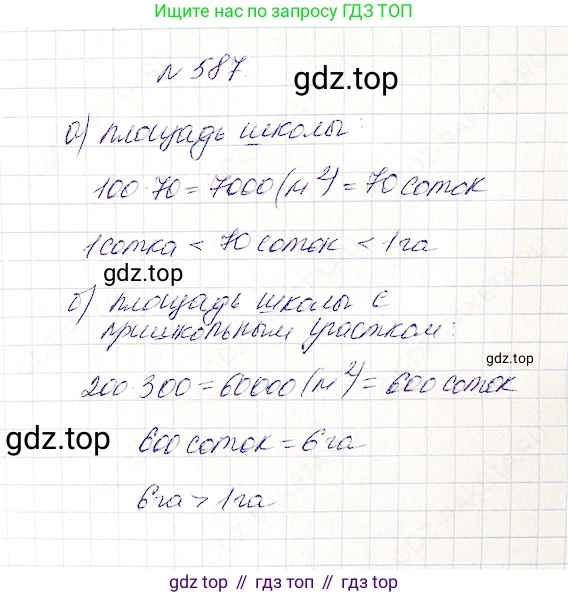 Ищите нас по запросу ГДЗ ТОП
№ 587.
gdz.top
а) площадь школы:
100·70=7000(м²)=70 соток
1 сотка < 70 соток < 1 га
gdz.top
б) площадь школы с
пришкольным участком:
gdz.top
200·300=60000(м²)=600 соток
gdz.top
600 соток = 6 га
6 га > 1 га
gdz top // гдз топ // gdz.top